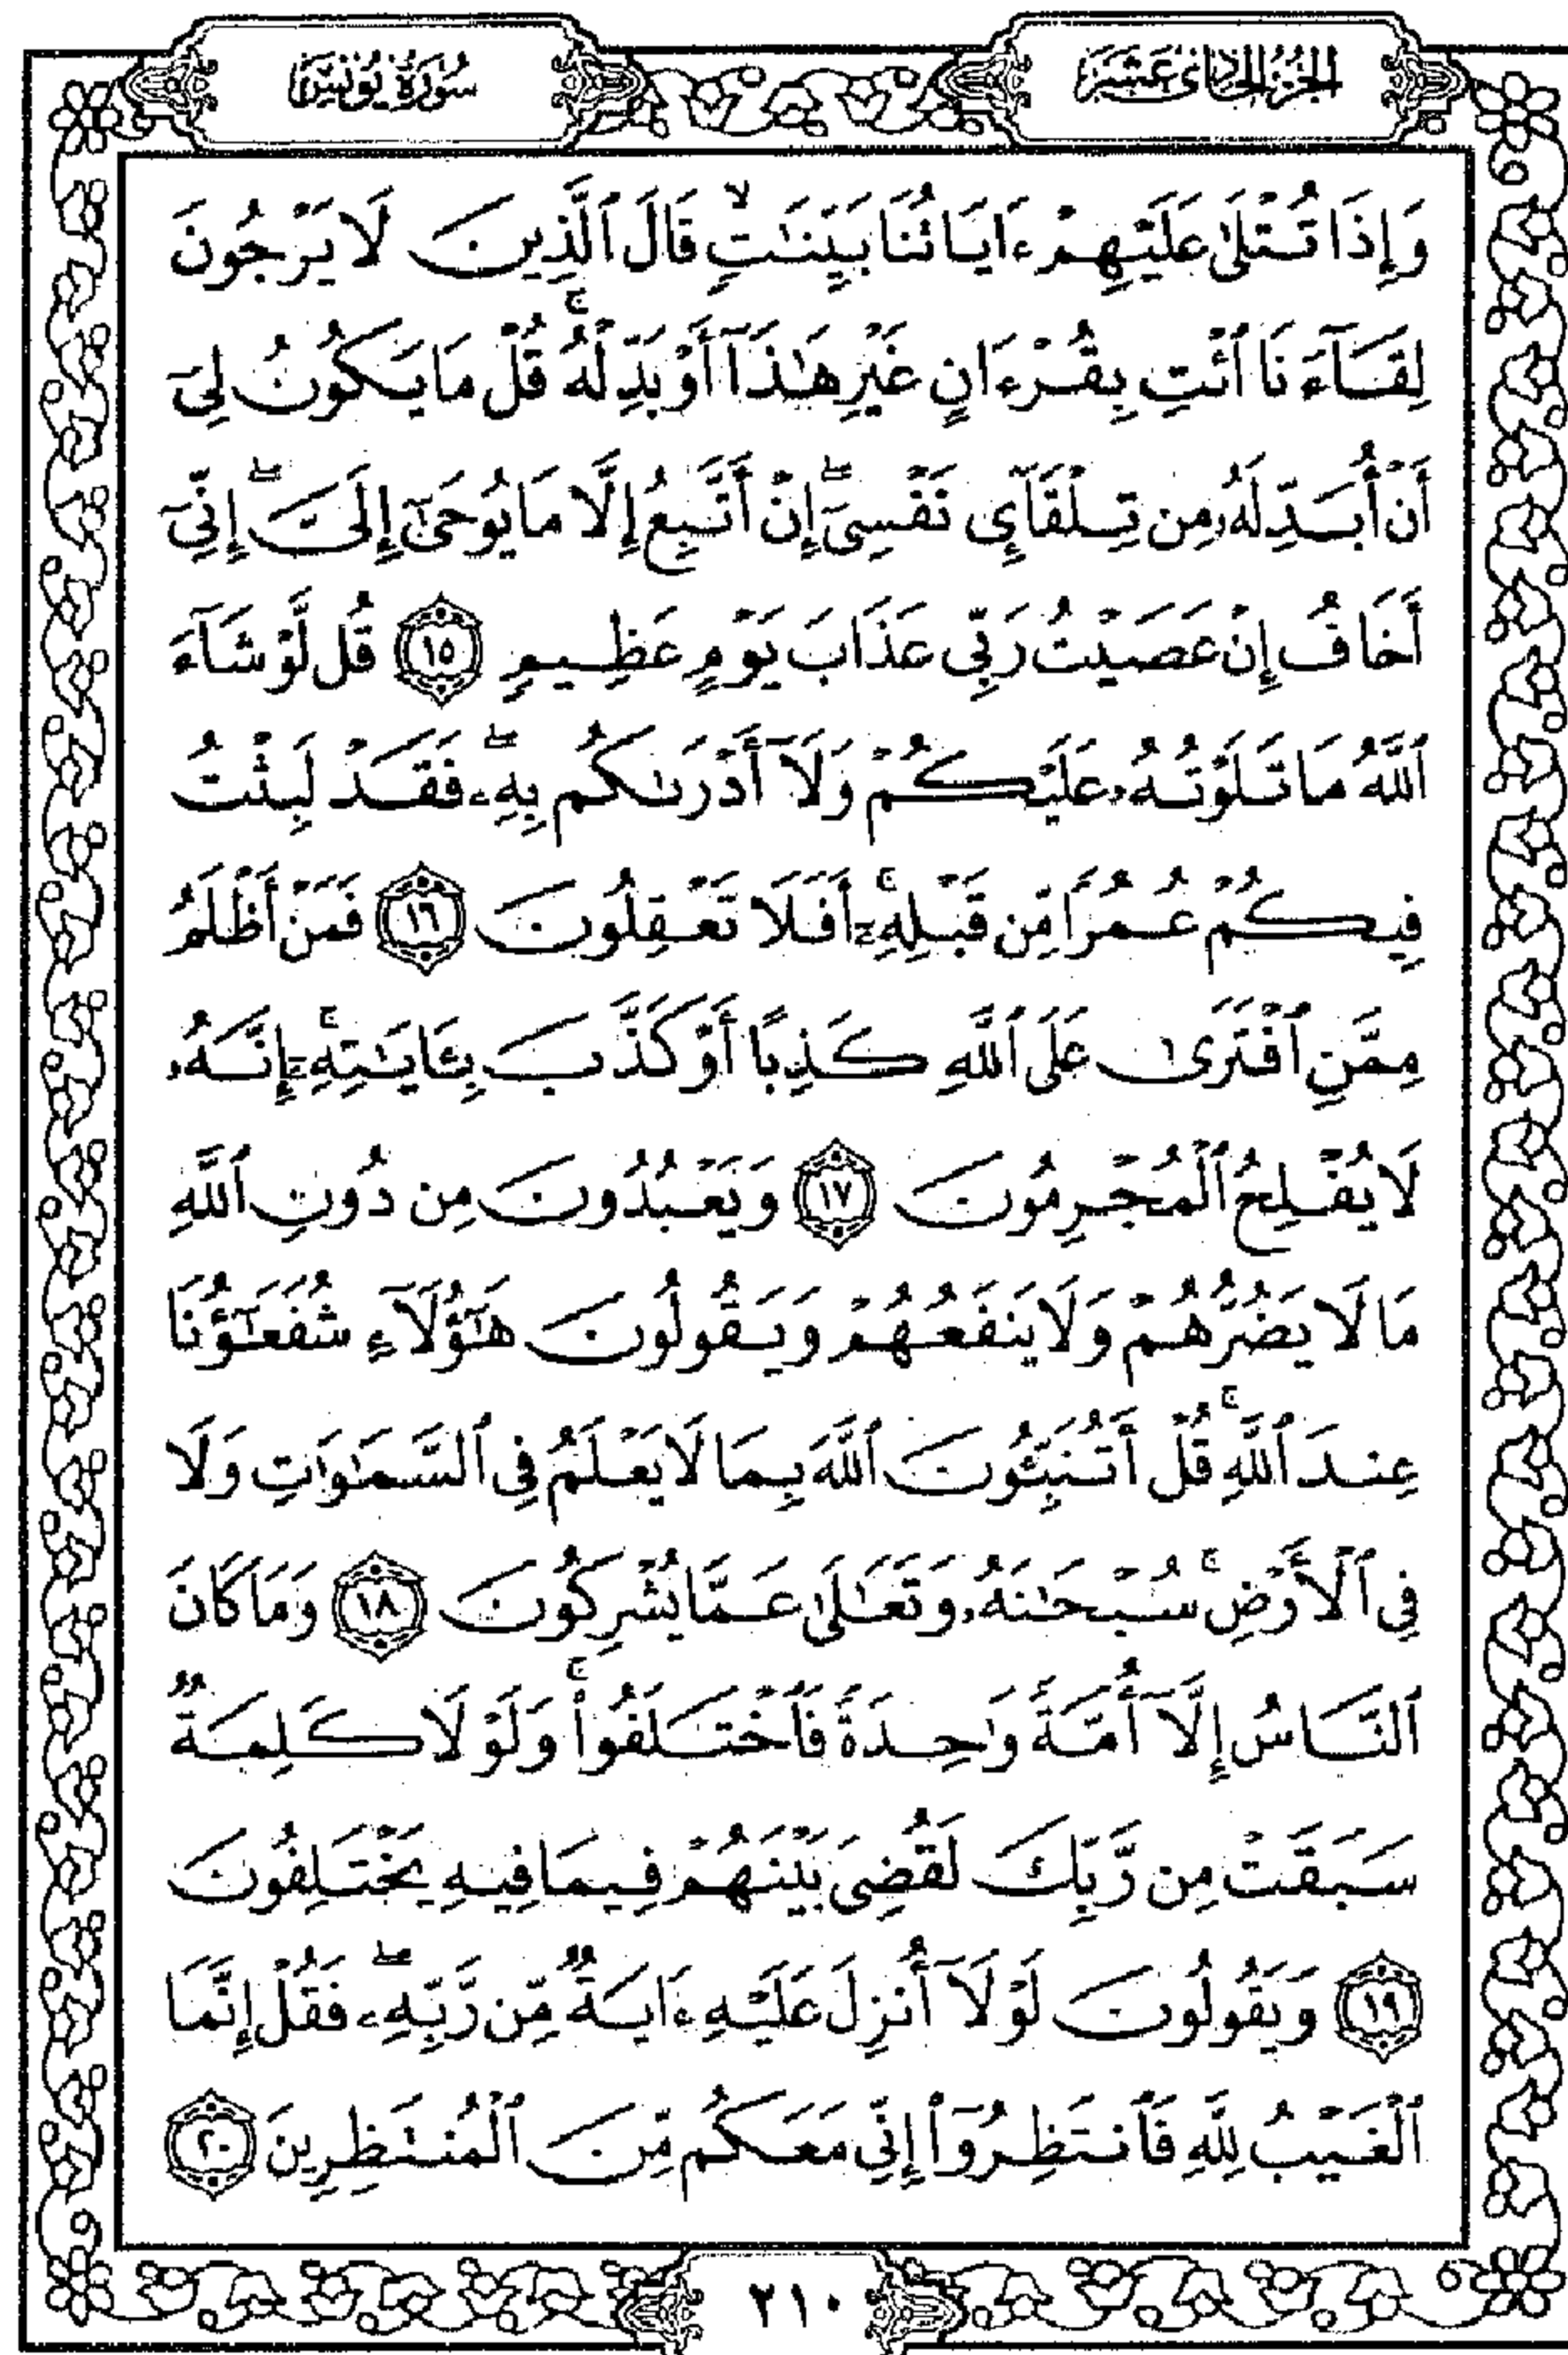 الجزء الحادى عشر
سورة يونس
وَإِذَا تُتْلَىٰ عَلَيْهِمْ ءَايَاتُنَا بَيِّنَٰتٍۙ قَالَ ٱلَّذِينَ لَا يَرْجُونَ
لِقَآءَنَا ٱئْتِ بِقُرْءَانٍ غَيْرِ هَٰذَآ أَوْ بَدِّلْهُۚ قُلْ مَا يَكُونُ لِىٓ
أَنْ أُبَدِّلَهُۥ مِن تِلْقَآئِ نَفْسِىٓۖ إِنْ أَتَّبِعُ إِلَّا مَا يُوحَىٰٓ إِلَىَّۖ إِنِّىٓ
أَخَافُ إِنْ عَصَيْتُ رَبِّى عَذَابَ يَوْمٍ عَظِيمٍ ١٥ قُل لَّوْ شَآءَ
ٱللَّهُ مَا تَلَوْتُهُۥ عَلَيْكُمْ وَلَآ أَدْرَىٰكُم بِهِۦۖ فَقَدْ لَبِثْتُ
فِيكُمْ عُمُرًا مِّن قَبْلِهِۦٓۚ أَفَلَا تَعْقِلُونَ ١٦ فَمَنْ أَظْلَمُ
مِمَّنِ ٱفْتَرَىٰ عَلَى ٱللَّهِ كَذِبًا أَوْ كَذَّبَ بِـَٔايَٰتِهِۦٓۚ إِنَّهُۥ
لَا يُفْلِحُ ٱلْمُجْرِمُونَ ١٧ وَيَعْبُدُونَ مِن دُونِ ٱللَّهِ
مَا لَا يَضُرُّهُمْ وَلَا يَنفَعُهُمْ وَيَقُولُونَ هَٰٓؤُلَآءِ شُفَعَٰٓؤُنَا
عِندَ ٱللَّهِۚ قُلْ أَتُنَبِّـُٔونَ ٱللَّهَ بِمَا لَا يَعْلَمُ فِى ٱلسَّمَٰوَٰتِ وَلَا
فِى ٱلْأَرْضِۚ سُبْحَٰنَهُۥ وَتَعَٰلَىٰ عَمَّا يُشْرِكُونَ ١٨ وَمَا كَانَ
ٱلنَّاسُ إِلَّآ أُمَّةً وَٰحِدَةً فَٱخْتَلَفُوا۟ۚ وَلَوْلَا كَلِمَةٌ
سَبَقَتْ مِن رَّبِّكَ لَقُضِىَ بَيْنَهُمْ فِيمَا فِيهِ يَخْتَلِفُونَ
١٩ وَيَقُولُونَ لَوْلَآ أُنزِلَ عَلَيْهِ ءَايَةٌ مِّن رَّبِّهِۦۖ فَقُلْ إِنَّمَا
ٱلْغَيْبُ لِلَّهِ فَٱنتَظِرُوٓا۟ إِنِّى مَعَكُم مِّنَ ٱلْمُنتَظِرِينَ ٢٠
٢١٠